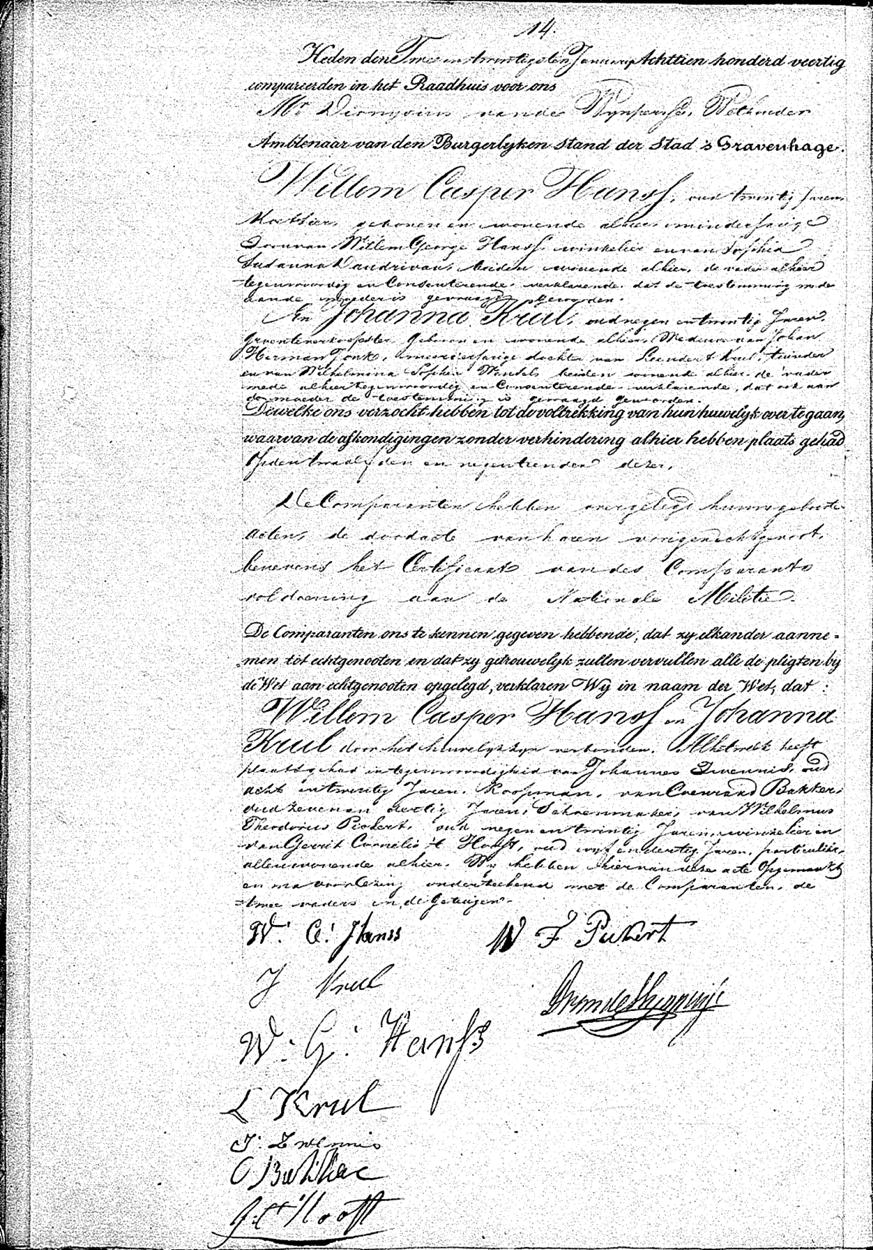 14.
Heden den Twee en twintigsten Januarij Achttien honderd veertig
compareerden in het Raadhuis voor ons
Mr. Dionysius van de Wynpersse, Wethouder
Ambtenaar van den Burgerlyken Stand der Stad 's Gravenhage.
Willem Casper Hanss, oud twintig Jaren
geboren en wonende alhier minderjarige
Zoon van Willem George Hanss, winkelier en van Sophia
Susanna beiden wonende alhier, de vader alhier
tegenwoordig en Consenterende verklarende dat de toestemming mede
aan de moeder is gevraagd geworden.
En Johanna Krul, oud negen en twintig Jaren,
Groentenverkoopster, Geboren en wonende alhier, Weduwe van Johan
Herman Jonke, meerderjarige dochter van Leendert Krul, tuinder
en van Wilhelmina Sophia beiden wonende alhier, de vader
mede alhier tegenwoordig en Consenterende verklarende, dat ook aan
de moeder de toestemming is gevraagd geworden.
Dewelke ons verzocht hebben tot de voltrekking van hun huwelyk over te gaan,
waarvan de afkondigingen zonder verhindering alhier hebben plaats gehad
Op den twaalfden en negentienden dezer.
De Comparanten hebben overgelegd hunne geboorte
acten, de doodacte van haren vorigen echtgenoot,
benevens het Certificaat van des Comparants
voldoening aan de Nationale Militie.
De Comparanten ons te kennen gegeven hebbende, dat zy elkander aanne-
men tot echtgenooten en dat zy getrouwelyk zullen vervullen alle de pligten by
de Wet aan echtgenooten opgelegd, verklaren Wy in naam der Wet, dat:
Willem Casper Hanss en Johanna
Krul door het huwelyk zyn verbonden. Alhetwelk heeft
plaats gehad in tegenwoordigheid van Johannes Zwennis, oud
acht en twintig Jaren, Koopman, van Coenraad Bakker,
oud zeven en dertig Jaren, Schoenmaker, van Wilhelmus
Theodorus Pickert, oud negen en twintig Jaren, winkelier en
van Gerrit Cornelis 't Hooft, oud vyf en dertig Jaren, particulier,
allen wonende alhier. Wy hebben hiervan deze acte Opgemaakt
en na voorlezing onderteekend met de Comparanten, de
twee vaders en de Getuigen.
W: C: Hanss
W F Pickert
J Krul
W: G: Hanss
L Krul
J: Zwennis
C Bakker
G. C. 't Hooft